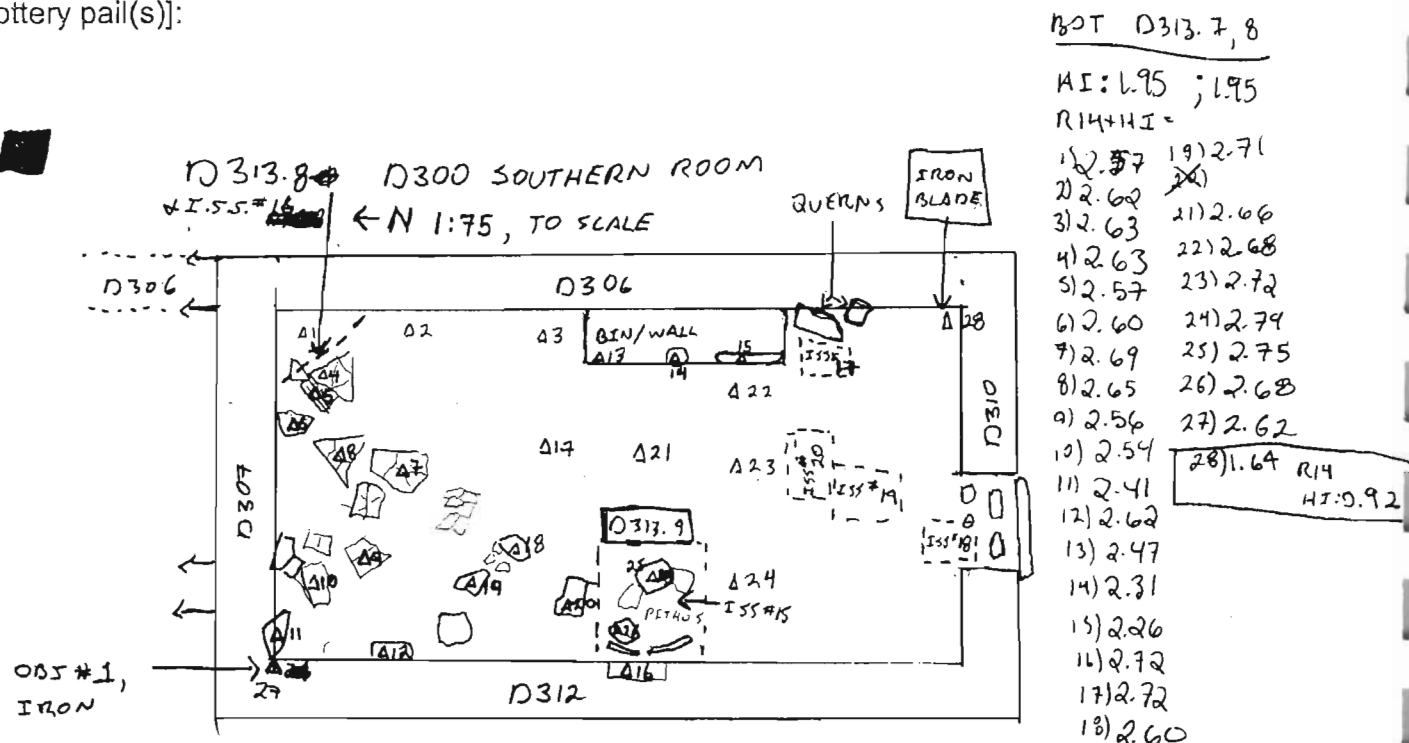 ottery pail(s)]:
BOT D313.7, 8
HI: 1.95 ; 1.95
R14+HI=
1) 2.57
2) 2.62
3) 2.63
4) 2.63
5) 2.57
6) 2.60
7) 2.69
8) 2.65
9) 2.56
10) 2.54
11) 2.41
12) 2.62
13) 2.47
14) 2.31
15) 2.26
16) 2.72
17) 2.72
18) 2.60
19) 2.71
20)
21) 2.66
22) 2.68
23) 2.72
24) 2.79
25) 2.75
26) 2.68
27) 2.62
28) 1.64 R14
HI: 0.92
D313.8 D300 SOUTHERN ROOM
& I.S.S. #16
← N 1:75, TO SCALE
QUERNS
IRON
BLADE
D306
D306
Δ1
Δ2
Δ3
BIN/WALL
Δ13
14
15
Δ28
ISS#
17
Δ4
Δ5
Δ6
Δ22
D310
Δ8
Δ7
Δ17
Δ21
Δ23
ISS#
20
ISS# 19
D307
D313.9
ISS#18
Δ18
Δ9
Δ10
Δ19
25
Δ24
ISS #15
PITHOS
Δ11
Δ12
Δ16
OBJ #1,
IRON
27
D312